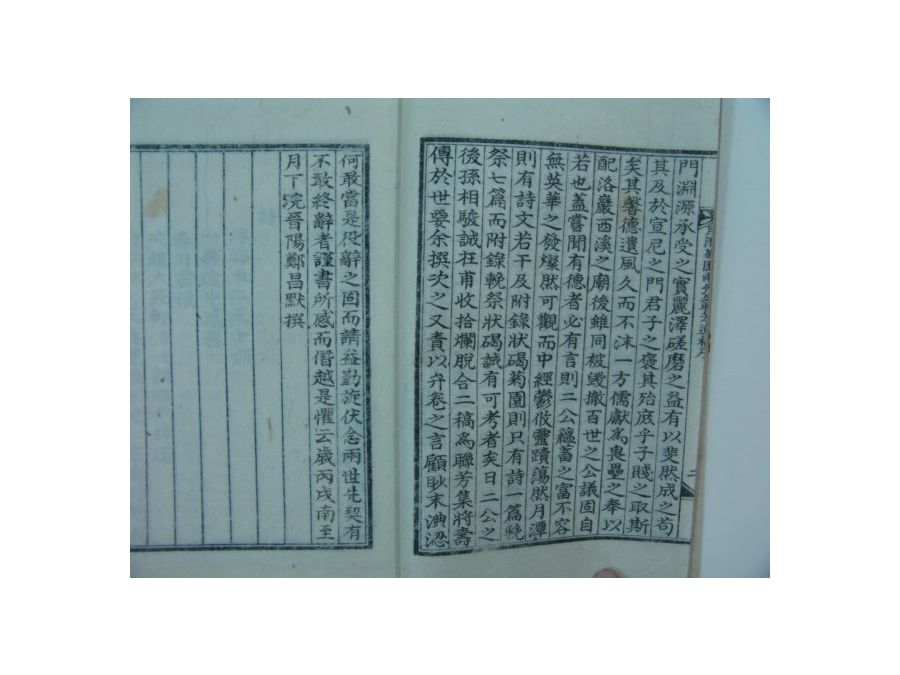 門淵源承受之實麗澤磋磨之益有以斐然成之苟
其及於宣尼之門君子之褒其殆庶乎子賤之取斯
矣其馨德遺風久而不沫一方儒獻為畏壘之奉以
配洛巖西溪之廟後雖同被毀撤百世之公議固自
若也蓋嘗聞有德者必有言則二公蘊蓄之富不容
無英華之發燦然可觀而中經鬱攸靈蹟蕩然月潭
則有詩文若干及附錄狀碣菊園則只有詩一篇輓
祭七篇而附錄輓祭狀碣誠有可考者矣日二公之
後孫相駿誠在甫收拾爛脫合二稿為聯芳集將壽
傳於世要余撰次之又責以弁卷之言顧眇末淟涊
何敢當是役辭之固而請益勤旋伏念兩世先契有
不敢終辭者謹書所感而僭越是懼云歲丙戌南至
月下浣晉陽鄭昌默撰